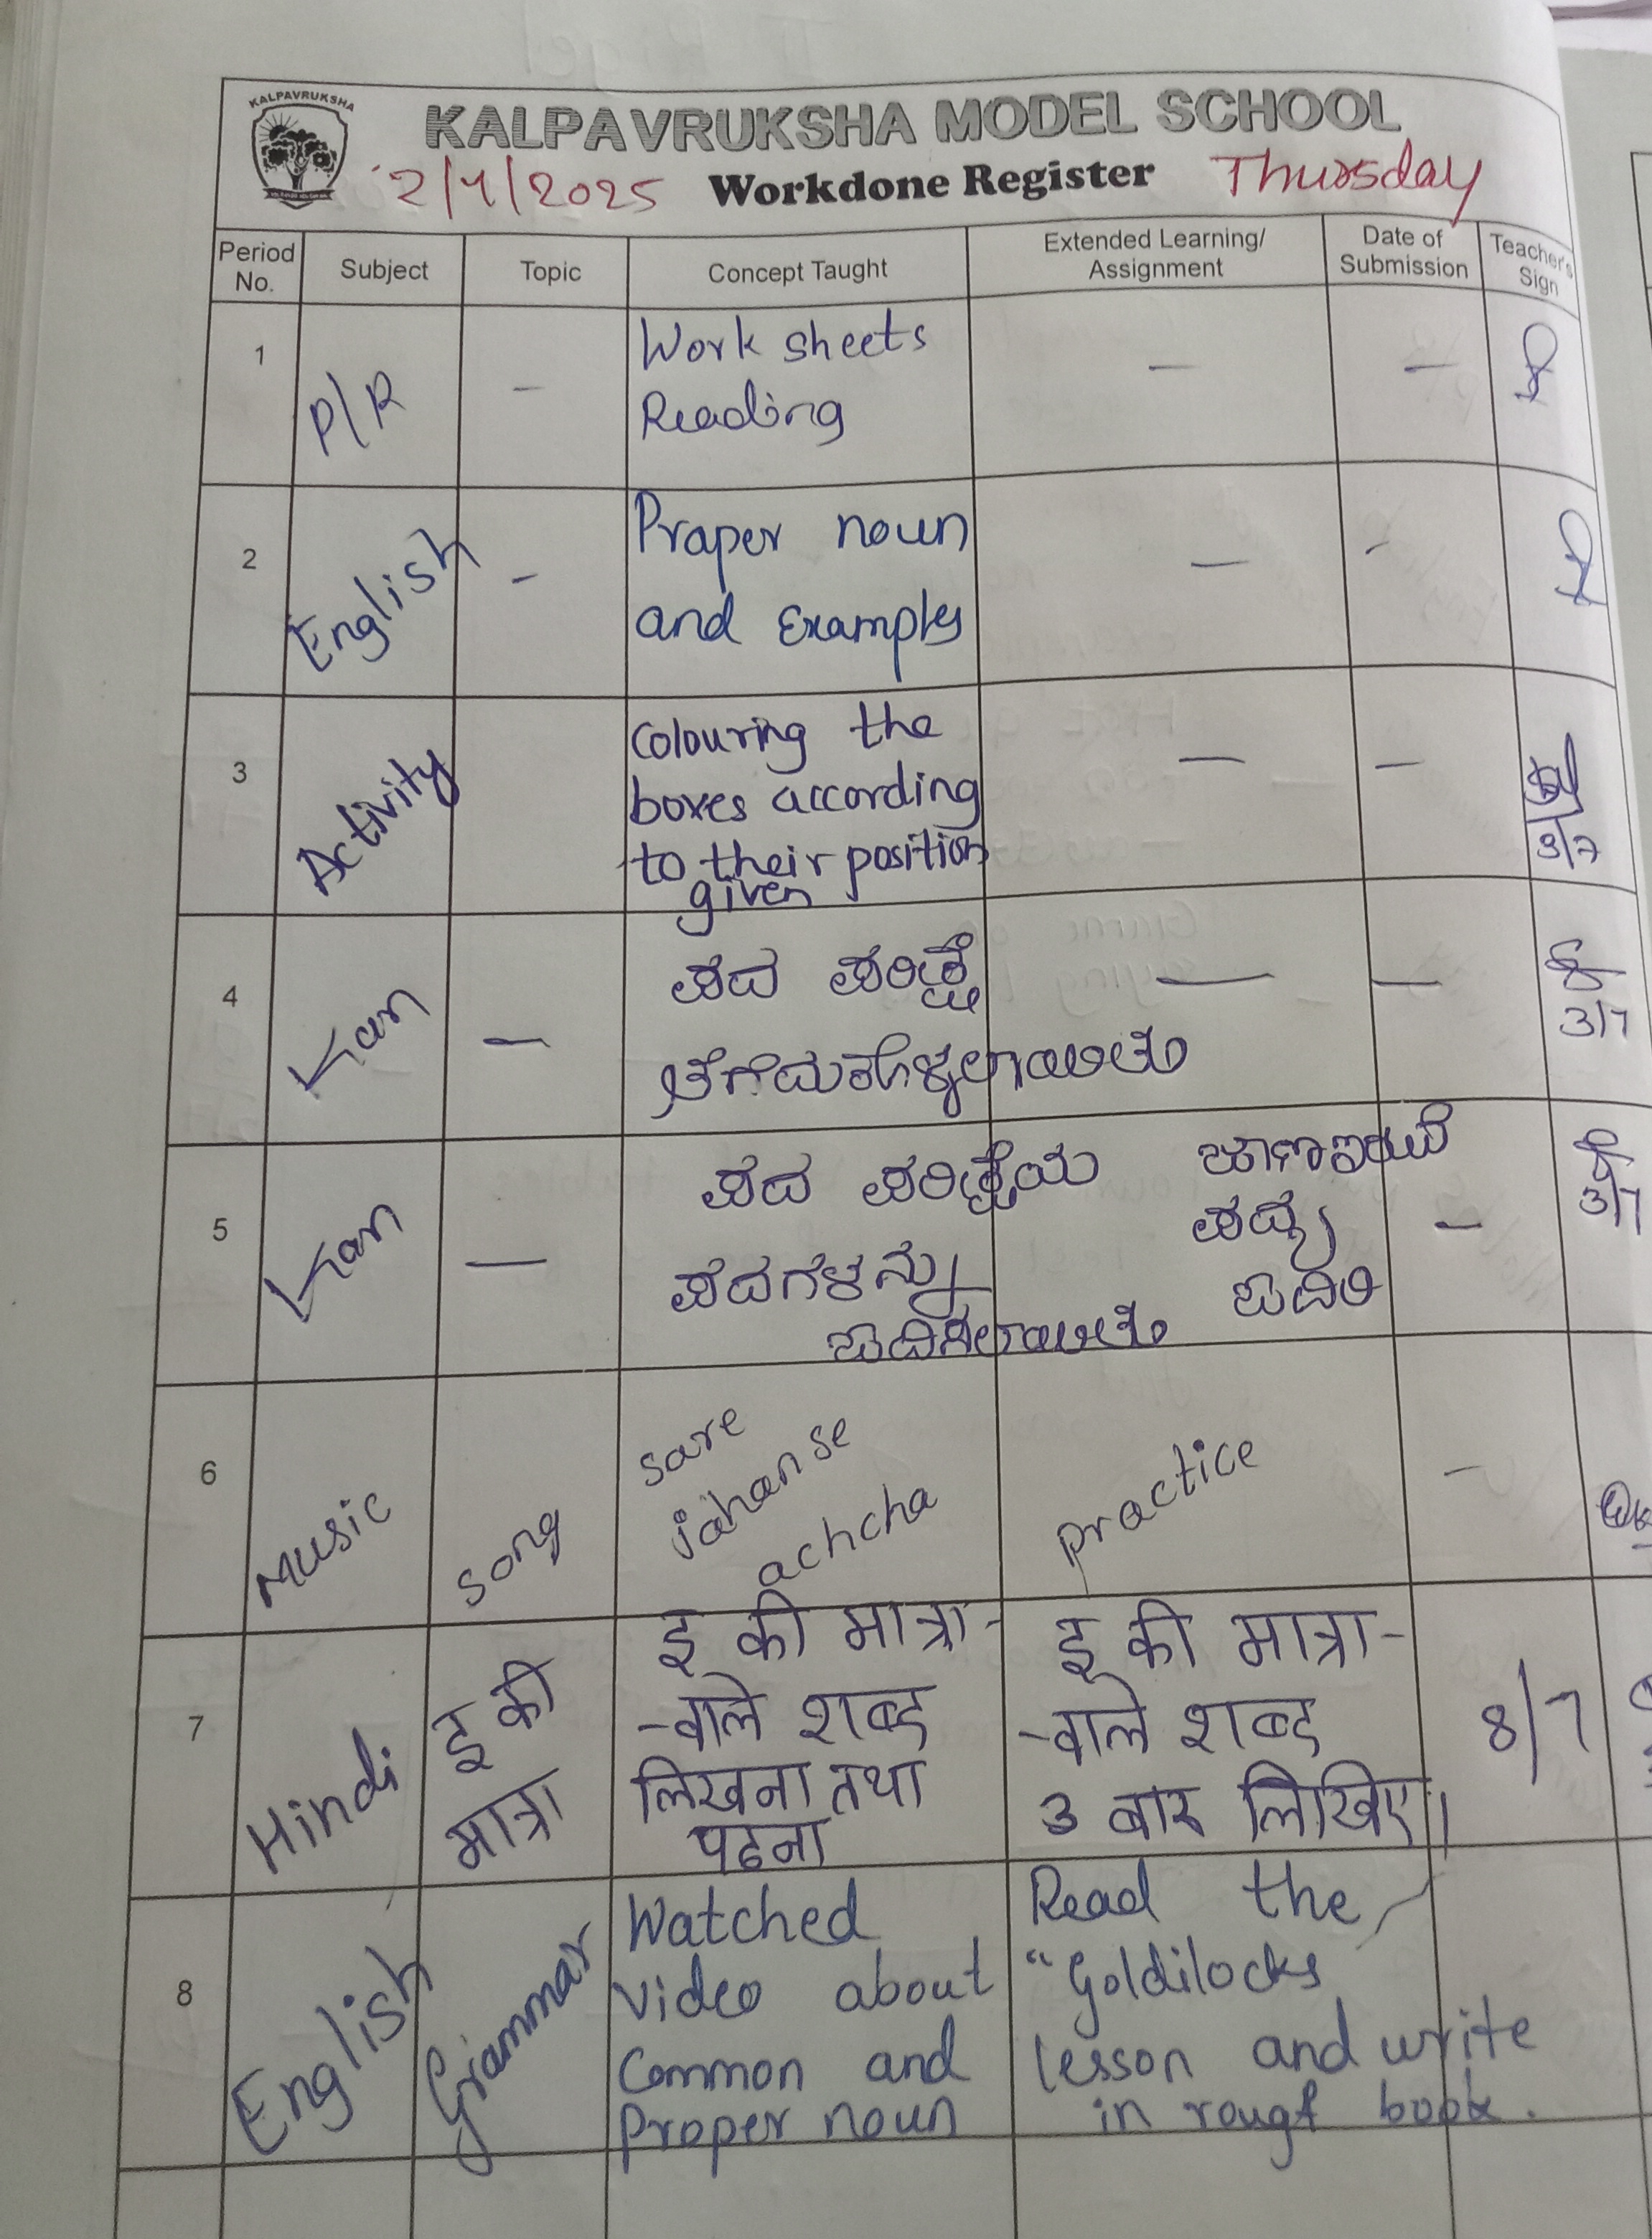 KALPAVRUKSHA
KALPAVRUKSHA MODEL SCHOOL
2/7/2025 Workdone Register Thursday
Period No. Subject Topic Concept Taught Extended Learning/ Assignment Date of Submission Teacher's Sign
1 P/R - Work sheets — —
Reading
2 English - Praper noun — -
and Examples
3 Activity Colouring the — —
boxes according
to their position
given
3/7
4 Kan — ಪದ ಪರೀಕ್ಷೆ — —
ತೆಗೆದುಕೊಳ್ಳಲಾಯಿತು
3/7
5 Kan — ಪದ ಪರೀಕ್ಷೆಯ ಜಾಣಇರುವೆ
ಪದಗಳನ್ನು ಪದ್ಯ —
ಓದಿಸಲಾಯಿತು ಓದಿರಿ
3/7
6 Music song sare
jahan se
achcha
practice —
7 Hindi इ की
मात्रा
इ की मात्रा-
-वाले शब्द
लिखना तथा
पढना
इ की मात्रा-
-वाले शब्द
3 बार लिखिए।
8/7
8 English Grammar
Watched
video about
Common and
Proper noun
Read the
"Goldilocks
lesson and write
in rougf book.